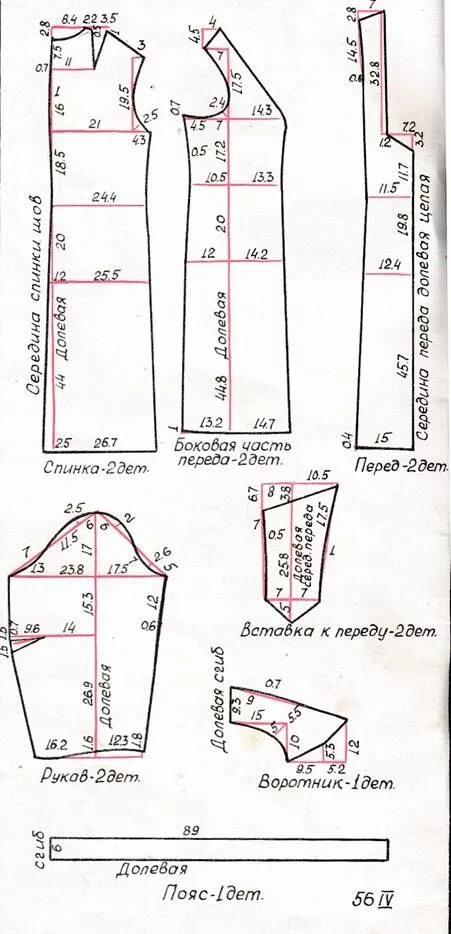 2.8 8.4 2.2 3.5
7.5 8.5 1
0.7 11 3
1 16 19.5
21 2.5
4.3
18.5
24.4
20
1.2 25.5
Середина спинки шов
Долевая
44
2.5 26.7
Спинка-2дет.
4
4.5
7
17.5
0.7 2.4
4.5 7 14.3
0.5 17.2
10.5 13.3
20
12 14.2
Долевая
44.8
1 13.2 14.7
Боковая часть
переда-2дет.
7
2.8
14.5
0.6 32.8
7.2
1.2 3.2
11.7
11.5
19.8
12.4
45.7
Середина переда долевая целая
0.4 15
Перед-2дет.
2.5 6 6 2
7 11.5 17 7 2.6
13 23.8 17.5 5
15.3 12
0.6
1.5 1.5 0.7 9.6 14
26.9
Долевая
16.2 1.6 12.3 1.8
Рукав-2дет.
10.5
6.7 8 3.8
7 0.5 17.5
25.8
Долевая
серед.переда
1
7 7
5
Вставка к переду-2дет.
Долевая сгиб
0.7
9.3 9
15 5.5
5 10 5.3 12
9.5 5.2
Воротник-1дет.
89
сгиб
6
Долевая
Пояс-1дет.
56 IV